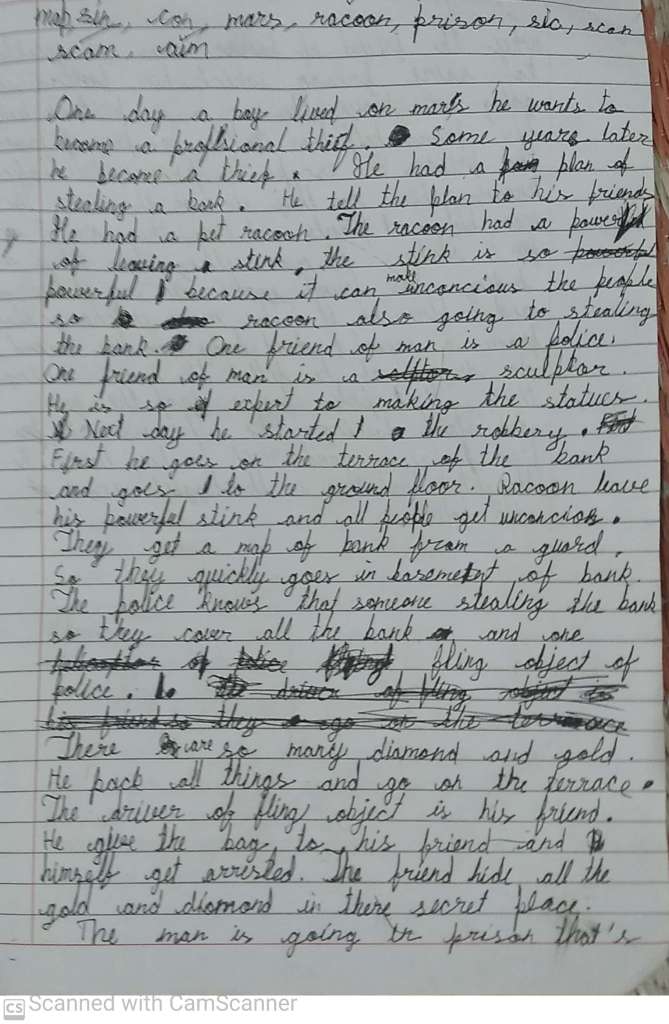 map sin, con, mars, racoon, prison, sic, scan
scam, aim
One day a boy lived on mars he wants to
become a proffsional thief. Some years later
he become a thief. He had a plan of
stealing a bank. He tell the plan to his friends
He had a pet racoon. The racoon had a powerful
of leaving a stink, the stink is so powerful
powerful because it can make unconcious the people
so racoon also going to stealing
the bank. One friend of man is a police.
One friend of man is a sculptar.
He is so expert to making the statues.
Next day he started the robbery.
First he goes on the terrace of the bank
and goes to the ground floor. Racoon leave
his powerful stink and all people get unconcios.
They get a map of bank from a guard.
So they quickly goes in basement of bank.
The police knows that someone stealing the bank
so they cover all the bank and one
fling object of
police. the driver of fling object is
his friend so they go on the terrace
There are so many diamond and gold.
He pack all things and go on the terrace.
The driver of fling object is his friend.
He give the bag to his friend and
himself get arrested. The friend hide all the
gold and diamond in there secret place.
The man is going in prison that's
CS Scanned with CamScanner